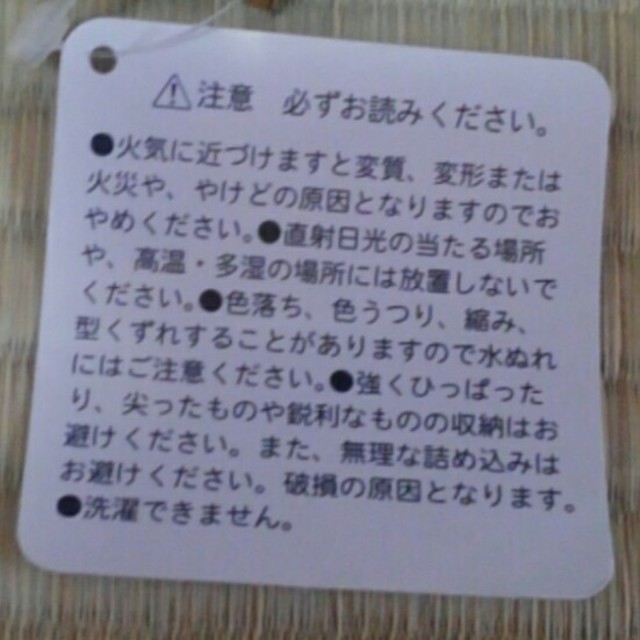 ⚠注意 必ずお読みください。
●火気に近づけますと変質、変形または
火災や、やけどの原因となりますのでお
やめください。●直射日光の当たる場所
や、高温・多湿の場所には放置しないで
ください。●色落ち、色うつり、縮み、
型くずれすることがありますので水ぬれ
にはご注意ください。●強くひっぱった
り、尖ったものや鋭利なものの収納はお
避けください。また、無理な詰め込みは
お避けください。破損の原因となります。
●洗濯できません。